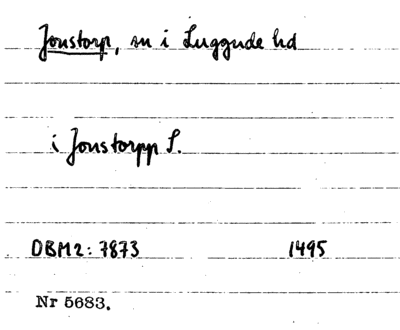 Jonstorp, sn i Luggude hd
i Jonstorpp S.
DBM2: 7873 1495
Nr 5683.